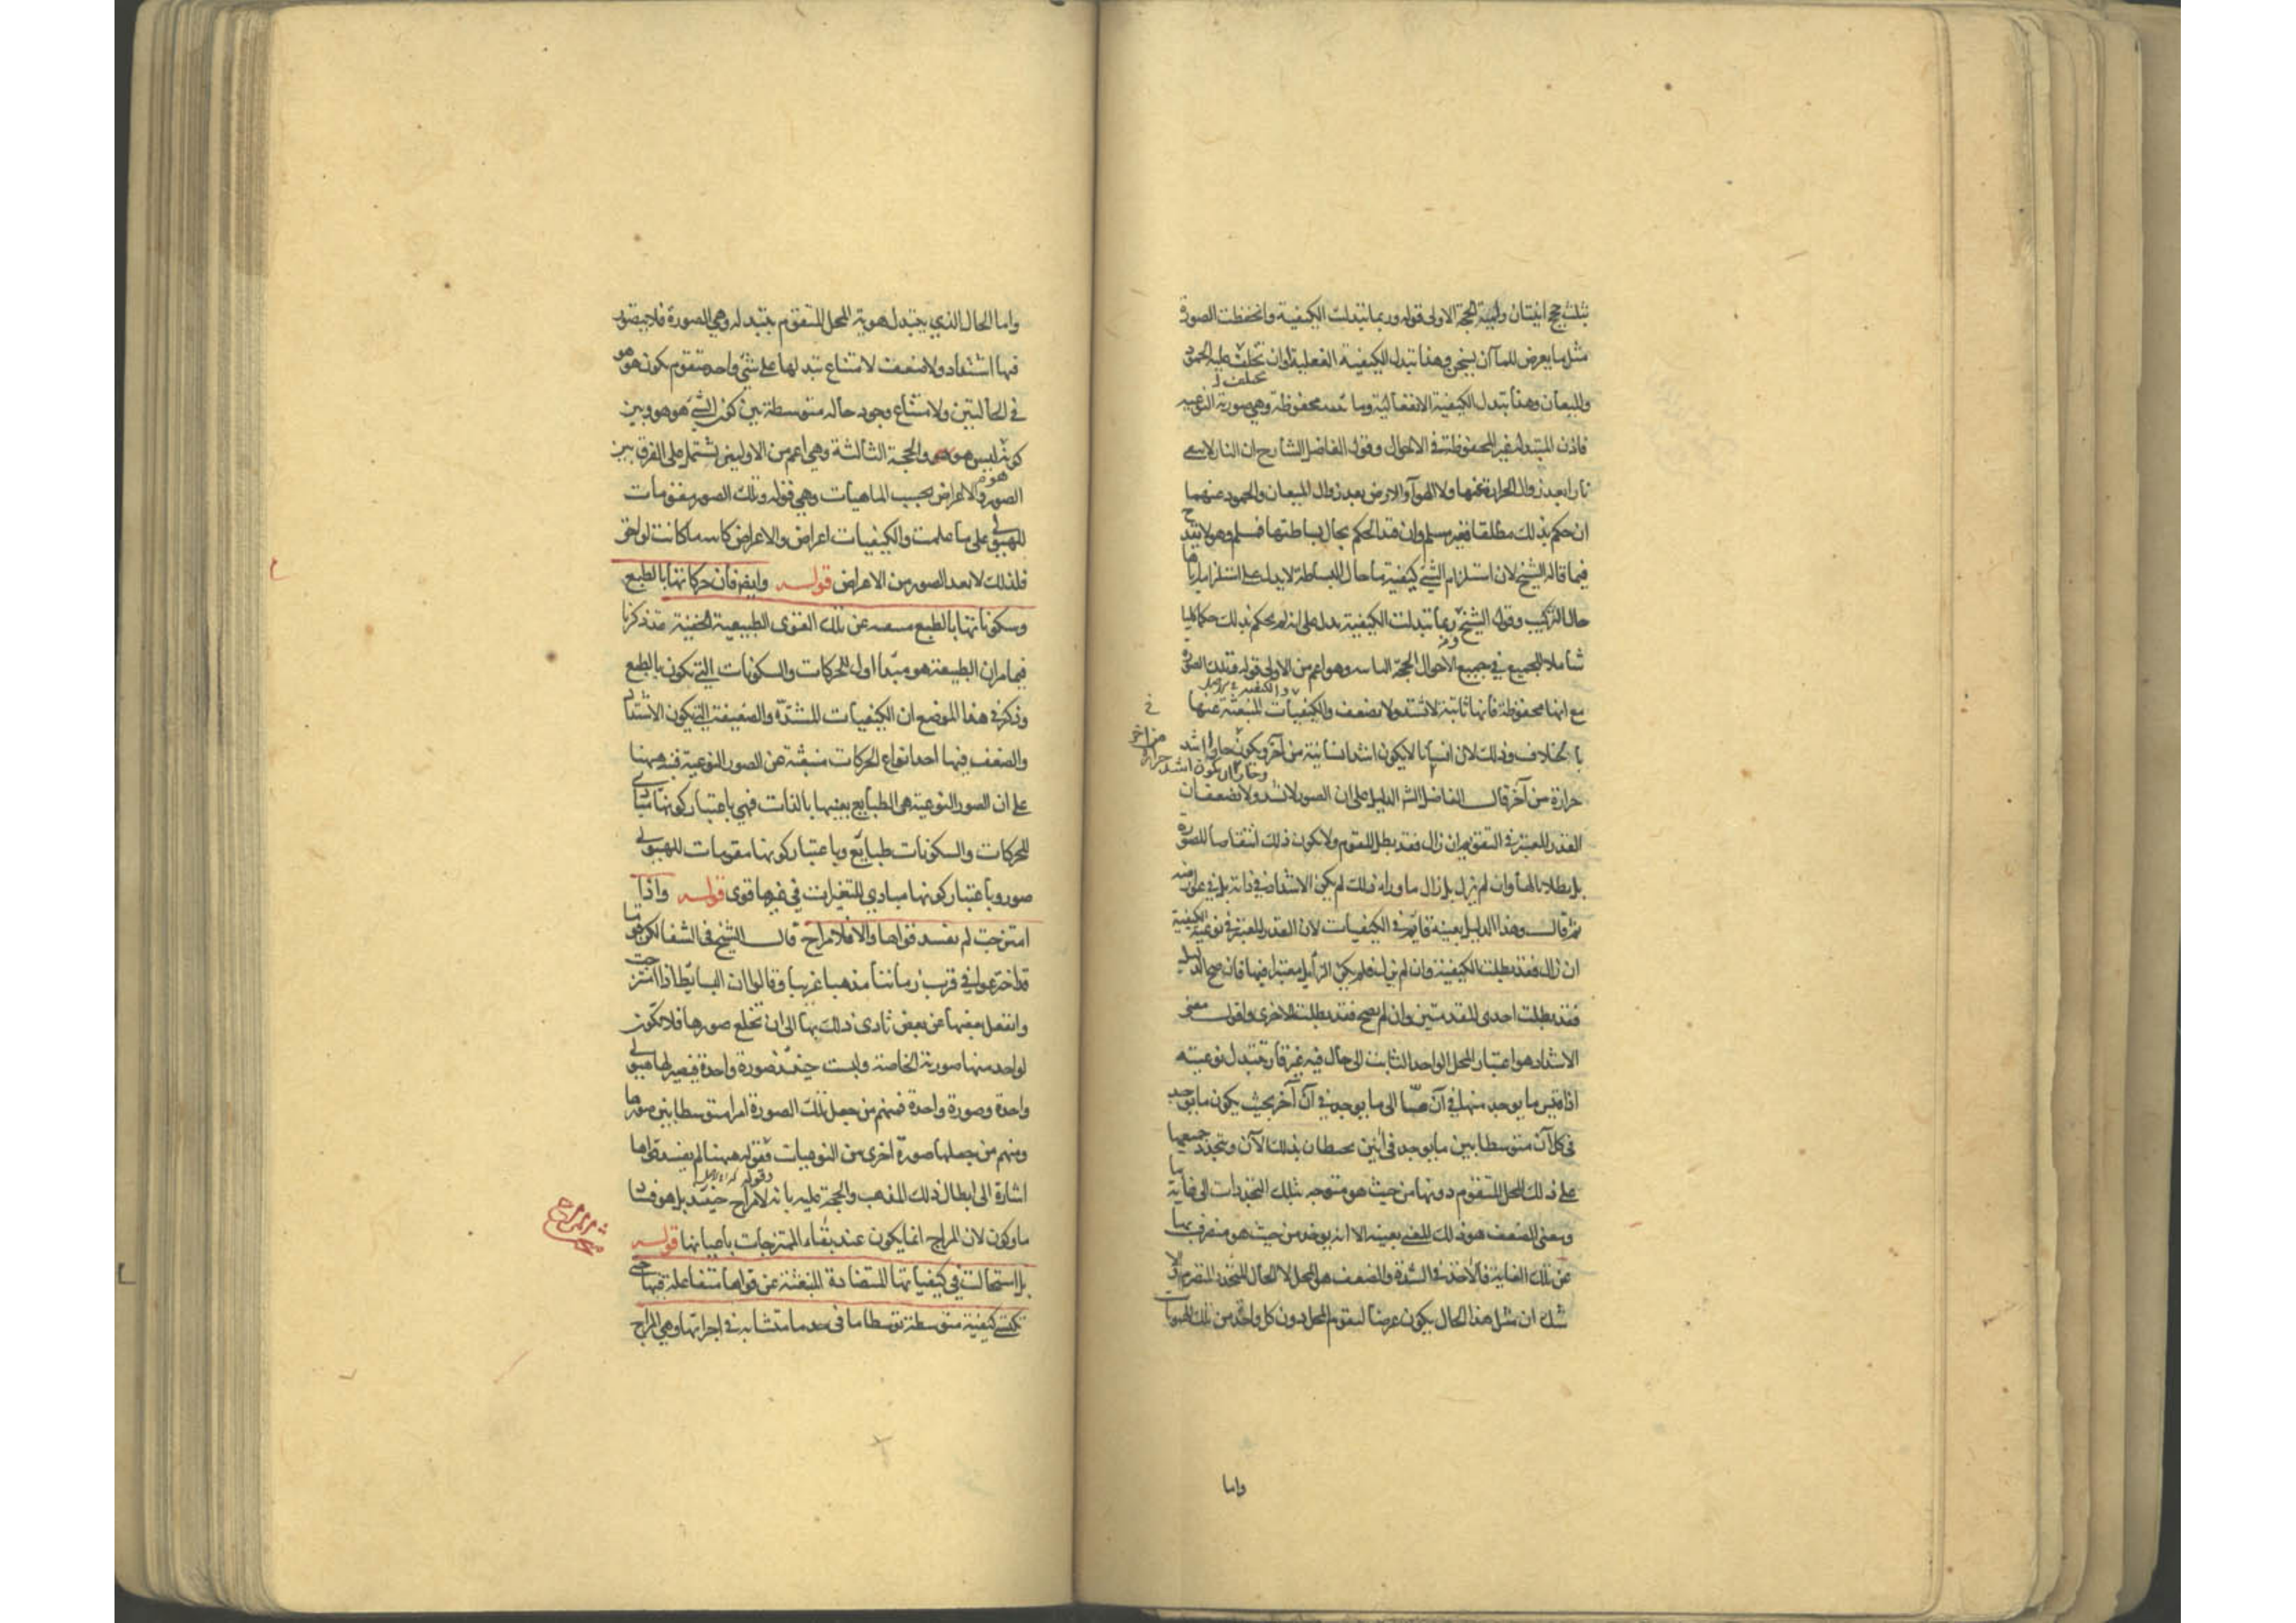 بثلث حجج انيتان ولمية الحجة الاولى قوله وربما تبدلت الكيفية وانحفظت الصورة
مثل ما يعرض للماء ان يسخن وهذا تبدل الكيفية الفعلية او ان تختلف عليه الجمود
تختلف
والميعان وهذا تبدل الكيفية الانفعالية وما محفوظة وهي صورية النوعية
فاذن المتبدلة غير المحفوظة في الاحوال وقول الفاضل الشارح ان النار لا
نارا بعد زوال الحرارة عنها ولا الهواء والارض بعد زوال الميعان والجمود عنهما
ان حكم بذلك مطلقا فغير مسلم وان قيد الحكم بحال بساطتها فمسلم وهو لا يقدح
فيما قاله الشيخ لان استلزام الشئ كيفية ما حال البساطة لا يدل على استلزامه اياها
حال التركيب وقول الشيخ وربما تبدلت الكيفية يدل على انه لم يحكم بذلك حكما كليا
شاملا للجميع في جميع الاحوال الحجة الثانية وهو اعم من الاولى قوله وتلك الصورة
مع انها محفوظة فانها ثابتة لا تشتد ولا تضعف والكيفيات المنبعثة عنها
بالخلاف وذلك لان انسانا لا يكون اشد انسانية من آخر ويكون حار اشد
حرارة من آخر قال الفاضل الشارح الدليل على ان الصور لا تشتد ولا تضعف ان
القدر المعتبر في التقويم ان زال فقد بطل المتقوم ولا يكون ذلك انتقاصا للصورة
بل بطلانا لها وان لم يزل بل زال ما وراه ذلك لم يكن الاشتداد في ذاته بل في عوارضه
ثم قال وهذا الدليل بعينه قائم في الكيفيات لان القدر المعتبر في نوعية الكيفية
ان زال فقد بطلت الكيفية وان لم يزل فلم يكن الزايل معتبرا فيها فان صح الدليل
فقد بطلت احدى المقدمتين وان لم يصح فقد بطلت الاخرى واقول معنى
الاشتداد هو اعتبار المحل الواحد الثابت الى حال فيه غير قار تتبدل نوعيته
اذا قيس ما يوجد منها في آن ما الى ما يوجد في آن آخر بحيث يكون ما يوجد
في كل آن متوسطا بين ما يوجد في آنين محيطان بذلك الآن ويتجدد جميعها
على ذلك المحل المتقوم دونها من حيث هو متوجه بتلك التجددات الى غاية ما
ومعنى الضعف هو ذلك المعنى بعينه الا انه يوخذ من حيث هو منصرف بها
عن تلك الغاية فالآخذ في الشدة والضعف هو المحل لا الحال المتجدد المتصرم ولا
شك ان مثل هذا الحال يكون عرضا لتقوم المحل دون كل واحد من تلك الهويات
واما
واما الحال الذي يتبدل هوية المحل المتقوم بتبدله وهي الصورة فلا يتصور
فيها اشتداد ولا ضعف لامتناع تبدلها على شئ واحد متقوم يكون هو هو
في الحالتين ولامتناع وجود حالة متوسطة بين كون الشئ هو هو وبين
كونه ليس هو هو والحجة الثالثة وهي اعم من الاوليين تشتمل على الفرق بين
الصور والاعراض بحسب الماهيات وهي قوله وتلك الصور مقومات
للهيولى على ما علمت والكيفيات اعراض والاعراض كانت لواحق
فلذلك لا تعد الصور من الاعراض قوله وايضا فان حركاتها بالطبع
وسكوناتها بالطبع منبعثة عن تلك القوى الطبيعية الخفية قد ذكرنا
فيما مر ان الطبيعة هو مبدأ اول للحركات والسكونات التي تكون بالطبع
وذكر في هذا الموضع ان الكيفيات المشتدة والضعيفة التي يكون الاشتداد
والضعف فيها احد انواع الحركات منبعثة عن الصور النوعية فنبه ههنا
على ان الصور النوعية هي الطبايع بعينها بالذات فهي باعتبار كونها مبادى
للحركات والسكونات طبايع وباعتبار كونها مقومات للهيولى
صور وباعتبار كونها مبادي للتغيرات في غيرها قوى قوله واذا
امتزجت لم تفسد قواها والا فلا مزاج قال الشيخ في الشفا لكن قوما
قد اخترعوا في قرب زماننا مذهبا غريبا وقالوا ان البسائط اذا امتزجت
وانفعل بعضها من بعض تادى ذلك بها الى ان تخلع صورها فلا تكون
لواحد منها صورته الخاصة ولبست حينئذ صورة واحدة فيصير لها هيولى
واحدة وصورة واحدة فمنهم من جعل تلك الصورة امرا متوسطا بين صورها
ومنهم من جعلها صورة اخرى من النوعيات فقوله ههنا لم تفسد قواها
اشارة الى ابطال ذلك المذهب والحجة عليه بانه لا مزاج حينئذ بل هو فساد
ما وكون لان المزاج انما يكون عند بقاء الممتزجات باعيانها قوله
بل استحالت في كيفياتها المتضادة المنبعثة عن قواها متفاعلة فيها حتى
تكتسى كيفية متوسطة توسطا ما في حد ما متشابه في اجزائها وهي المزاج